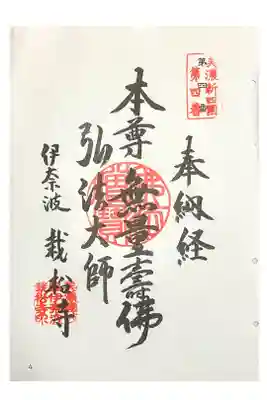 美濃新四国
第四番
奉納経
本尊無量壽佛
弘法大師
伊奈波 栽松寺
4